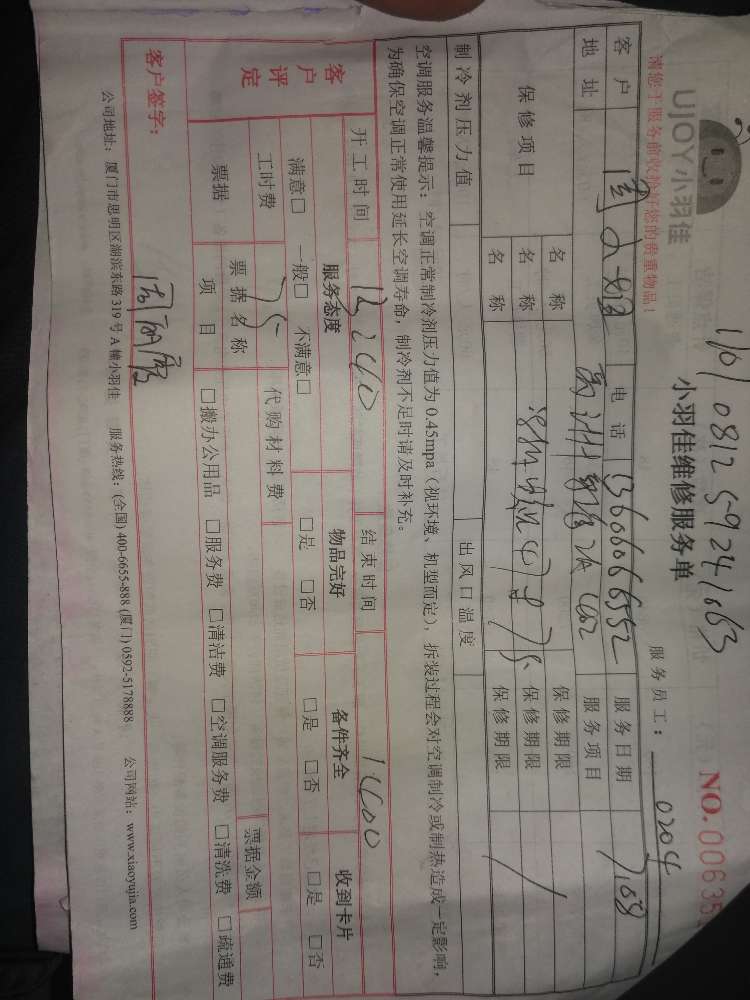 1101081259241663
UJOY小羽佳
小羽佳维修服务单
NO.00635
请您于服务前收拾好您的贵重物品！
服务员工：0204
客户 电话 13606066552 服务日期 7.08
地址 服务项目
保修项目 名称 保修期限
名称 保修期限
名称 保修期限
制冷剂压力值 出风口温度
空调服务温馨提示：空调正常制冷剂压力值为0.45mpa（视环境、机型而定），拆装过程会对空调制冷或制热造成一定影响，
为确保空调正常使用延长空调寿命，制冷剂不足时请及时补充。
开工时间 结束时间 1400
客户评定 服务态度 物品完好 备件齐全 收到卡片
满意□ 一般□ 不满意□ □是 □否 □是 □否 □是 □否
工时费 75 代购材料费
票据 票据名称 票据金额
项目 □搬办公用品 □服务费 □清洁费 □空调服务费 □清洗费 □疏通费
客户签字：
公司地址：厦门市思明区湖滨东路319号A幢小羽佳 服务热线：(全国)400-6655-888 (厦门)0592-5178888 公司网站：www.xiaoyujia.com